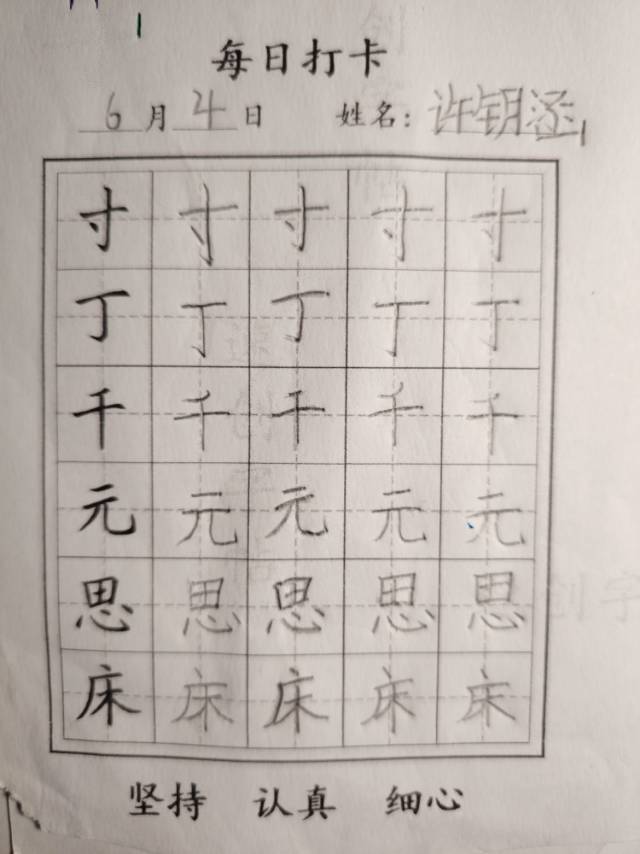 每日打卡
6月4日 姓名：许钥涵
寸寸寸寸寸
丁丁丁丁丁
千千千千千
元元元元元
思思思思思
床床床床床
坚持 认真 细心